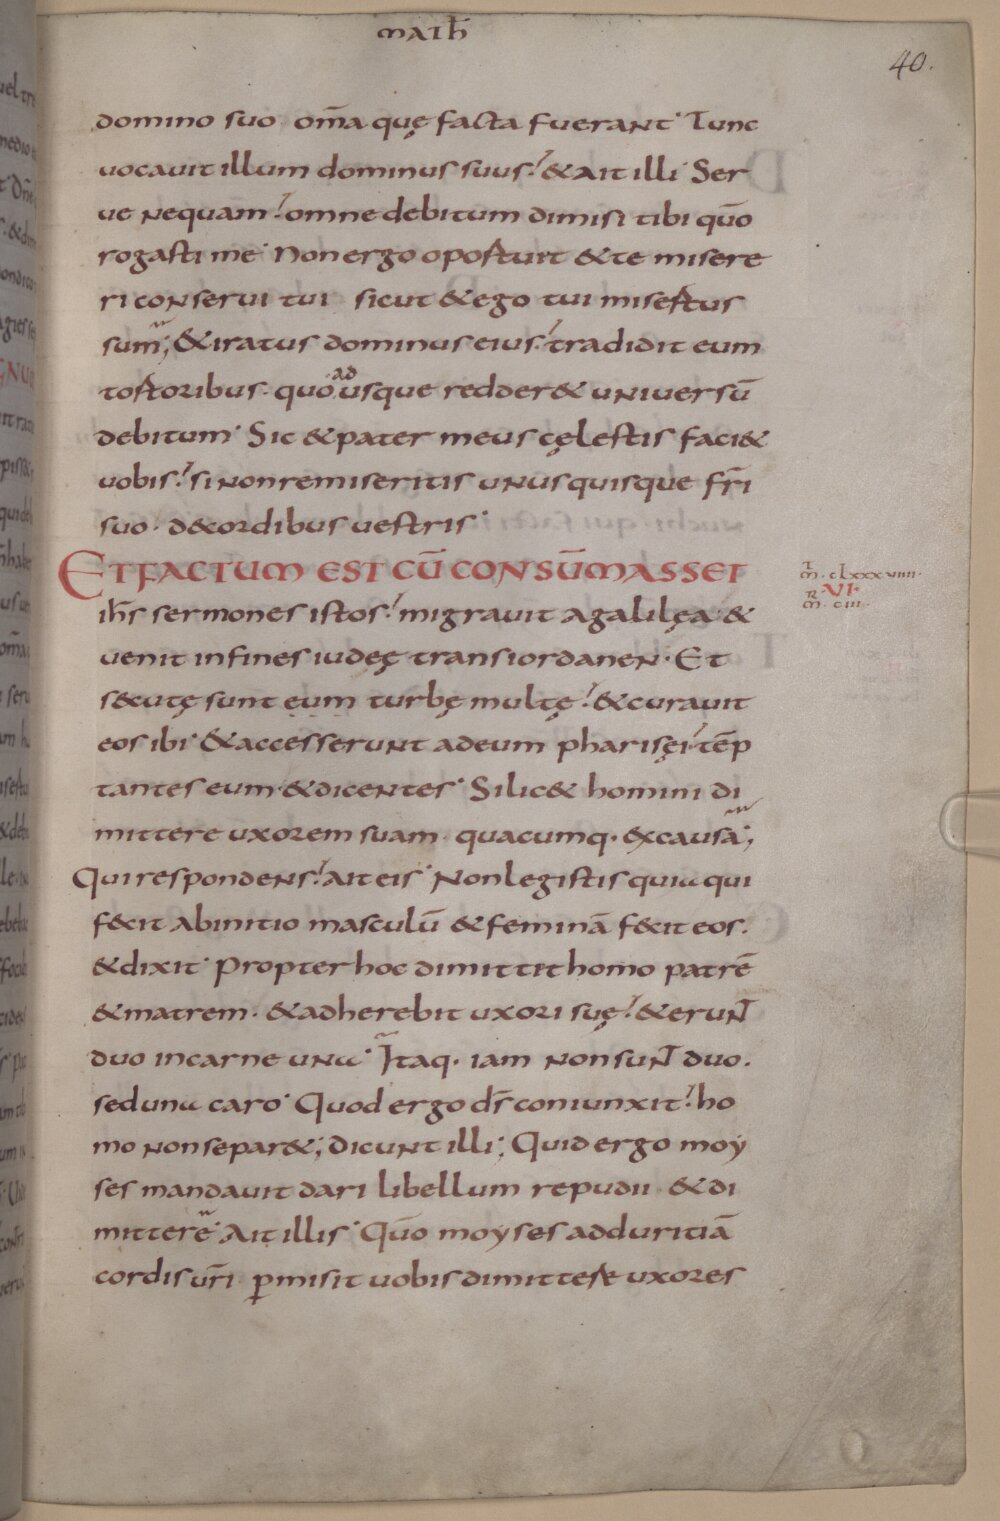 MATH
40.
domino suo om̄a quę facta fuerant Tunc
vocavit illum dominus suus & ait illi Ser
ue nequam omne debitum dimisi tibi quō
rogasti me Non ergo oportuit & te misere
ri conservi tui sicut & ego tui misertus
sum; & iratus dominus eius tradidit eum
tortoribus quo ad usque redder& universū
debitum Sic & pater meus cęlestis faci&
uobis si non remiseritis unus quisque fr̄i
suo· de cordibus uestris
ET FACTUM EST CŪ CONSŪMASSET
ih̄s sermones istos migravit a galilęa &
venit in fines iudeę trans iordanen· Et
s&cutę sunt eum turbę multę & curavit
eos ibi & accesserunt ad eum pharisęi tēp
tantes eum & dicentes Si lic& homini di
mittere uxorem suam quacumq· ex causa;
Qui respondens ait eis Non legistis quia qui
f&cit ab initio masculū & feminā f&cit eos·
& dixit Propter hoc dimittit homo patrē
& matrem· & adherebit uxori suę & erunt
duo in carne una Itaq· iam non sunt duo·
sed una caro Quod ergo d̄s coniunxit ho
mo non separ&; dicunt illi; Quid ergo moy
ses mandavit dari libellum repudii & di
mittere Ait illis Quō moyses ad duritiā
cordis ur̄i ꝑmisit uobis dimittere uxores
m̄· clxxxviiii·
R VI·
m̄· ciii·